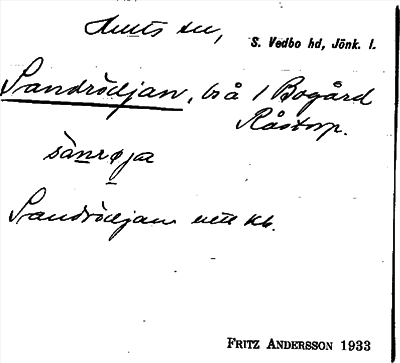 S. Vedbo hd, Jönk. l.
Sandrödjan, bå / Bogård
Råstorp.
sànrøja
Sandrödjan
FRITZ ANDERSSON 1933